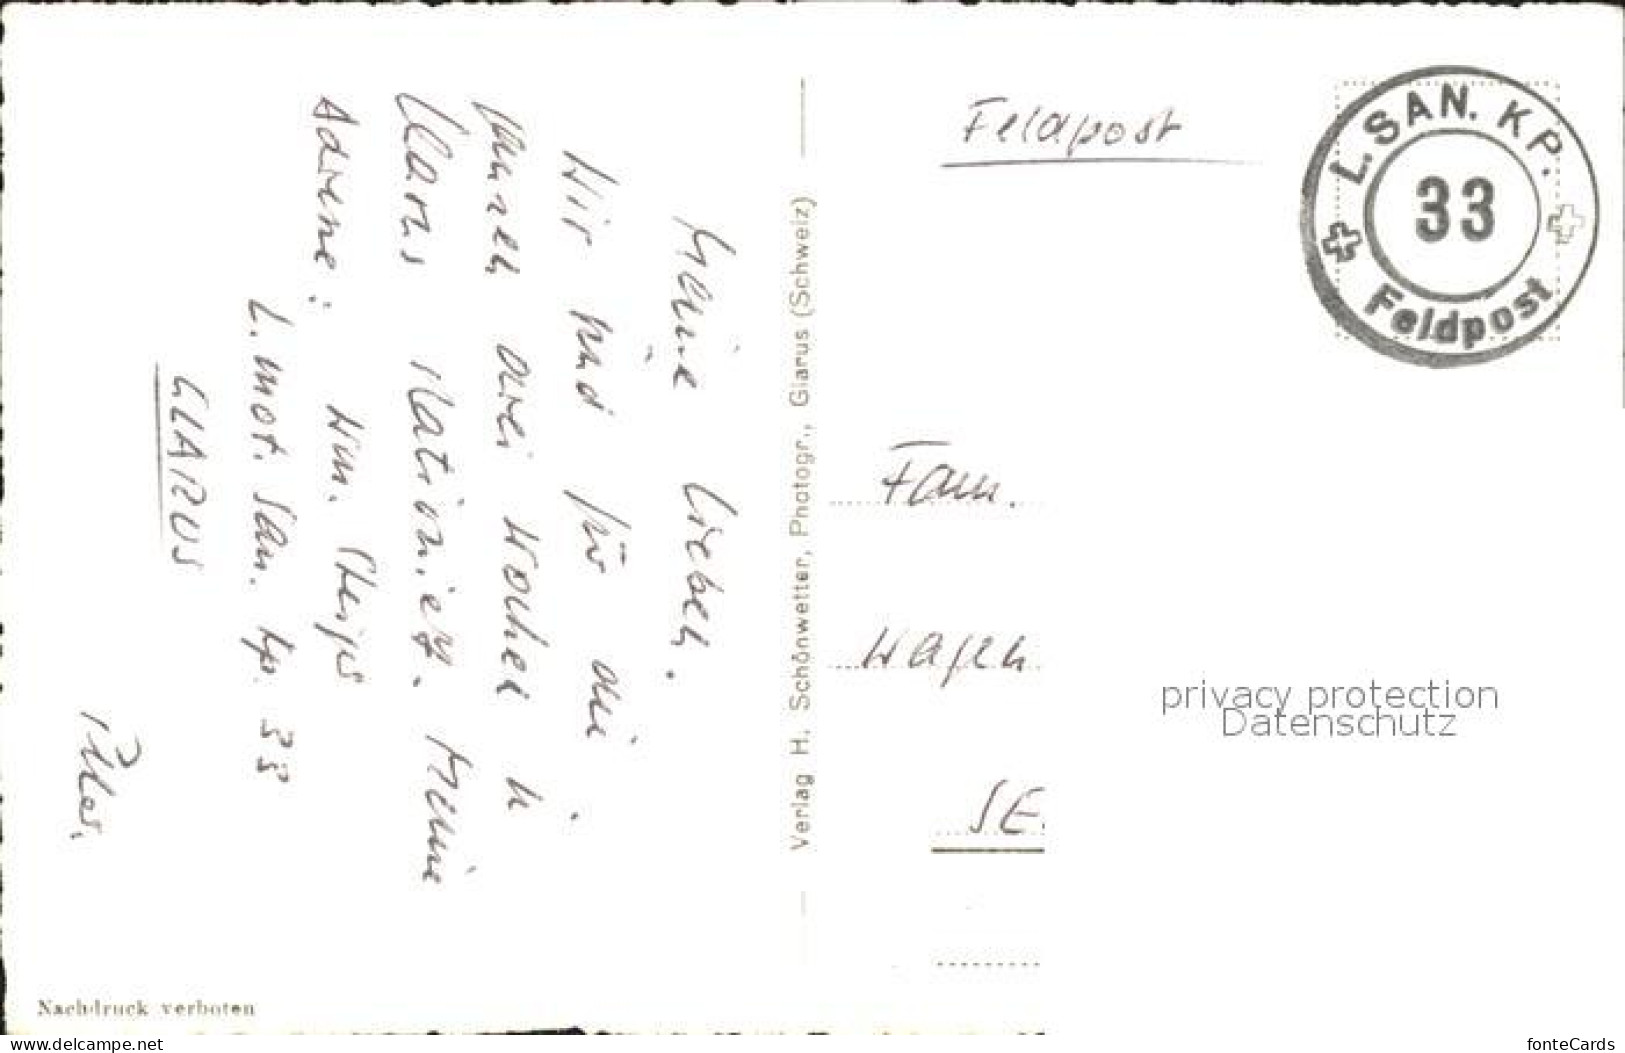 Meine Lieben.
Wir sind für die
ganzen drei Wochen in
Glarus stationiert. Meine
Adresse: Wm.
L. mot. San. Kp. 33
GLARUS
Verlag H. Schönwetter, Photogr., Glarus (Schweiz)
Nachdruck verboten
Feldpost
L. SAN. KP.
33
Feldpost
Fam.
Wagen
SE.
privacy protection
Datenschutz
www.delcampe.net
fonteCards